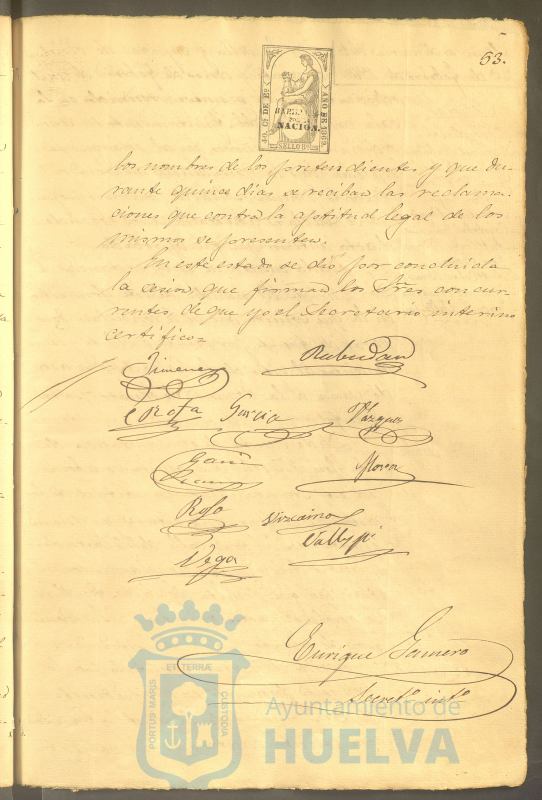 53.
40 Cs DE Eo
AÑO DE 1869.
HABILITADO
POR LA
NACIÓN.
SELLO 8º
los nombres de los pretendientes y que du-
rante quince dias se reciban las reclama-
ciones que contra la aptitud legal de los
mismos se presenten.
En este estado se dió por concluida
la sesion, que firman los Sres concur-
rentes, de que yo el Secretario interino
certifico=
Jimenez
Rofa Garcia Vazquez
Garcia Moreno
Rofo Vizcaino
Vega
Enrique Gamero
Secretº intº
PORTUS MARIS ET TERRÆ CUSTODIA
Ayuntamiento de
HUELVA